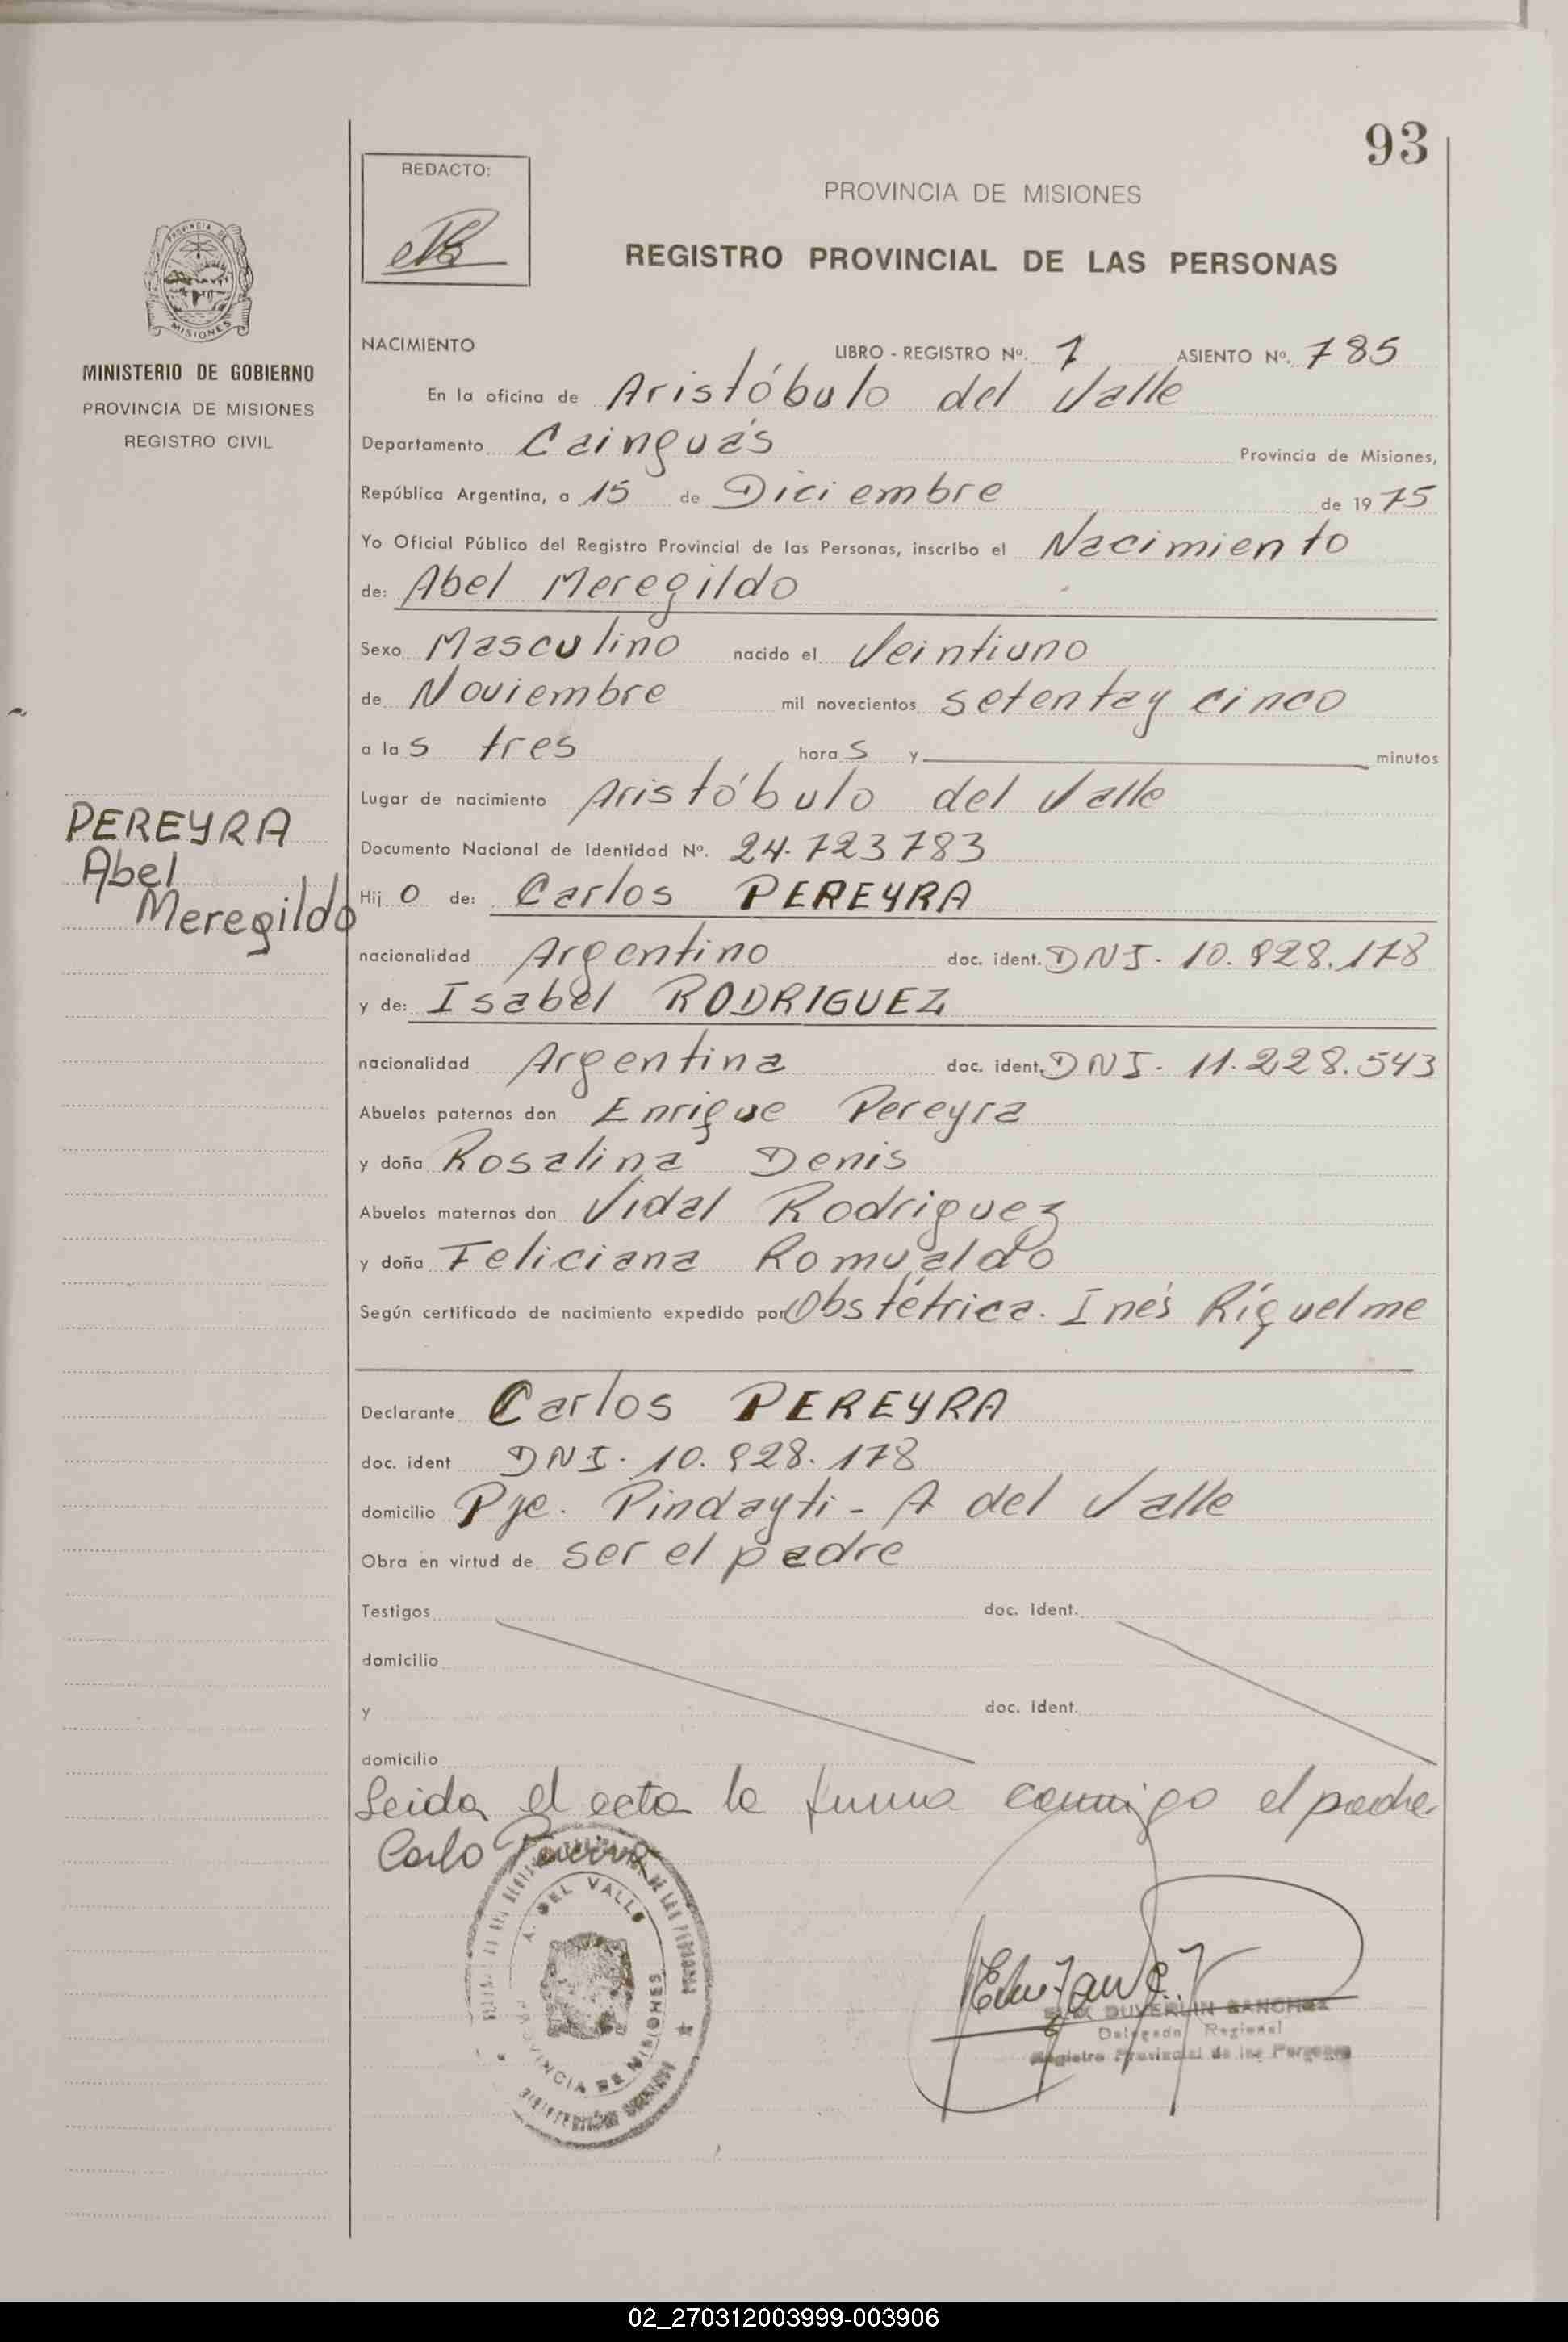 93
REDACTO:
PROVINCIA DE MISIONES
REGISTRO PROVINCIAL DE LAS PERSONAS
PROVINCIA DE
MISIONES
MINISTERIO DE GOBIERNO
PROVINCIA DE MISIONES
REGISTRO CIVIL
NACIMIENTO LIBRO - REGISTRO Nº. 1 ASIENTO Nº. 785
En la oficina de Aristóbulo del Valle
Departamento Cainguás Provincia de Misiones,
República Argentina, a 15 de Diciembre de 1975
Yo Oficial Público del Registro Provincial de las Personas, inscribo el Nacimiento
de: Abel Meregildo
Sexo Masculino nacido el Veintiuno
de Noviembre mil novecientos setenta y cinco
a las tres horas y minutos
Lugar de nacimiento Aristóbulo del Valle
PEREYRA
Abel
Meregildo
Documento Nacional de Identidad Nº. 24.723783
Hijo de: Carlos PEREYRA
nacionalidad Argentino doc. ident. DNI- 10.928.178
y de: Isabel RODRIGUEZ
nacionalidad Argentina doc. ident. DNI- 11.228.543
Abuelos paternos don Enrique Pereyra
y doña Rosalina Denis
Abuelos maternos don Vidal Rodriguez
y doña Feliciana Romualdo
Según certificado de nacimiento expedido por Obstétrica. Inés Riquelme
Declarante Carlos PEREYRA
doc. ident DNI. 10.928.178
domicilio Pje. Pindayti - A del Valle
Obra en virtud de ser el padre
Testigos doc. Ident.
domicilio
y doc. Ident.
domicilio
Leida el acta la firma conmigo el padre.
Carlo
A. DEL VALLE
PROVINCIA DE MISIONES
DUVERLIN SANCHEZ
Delegado Regional
Registro Provincial de las Personas
02_270312003999-003906